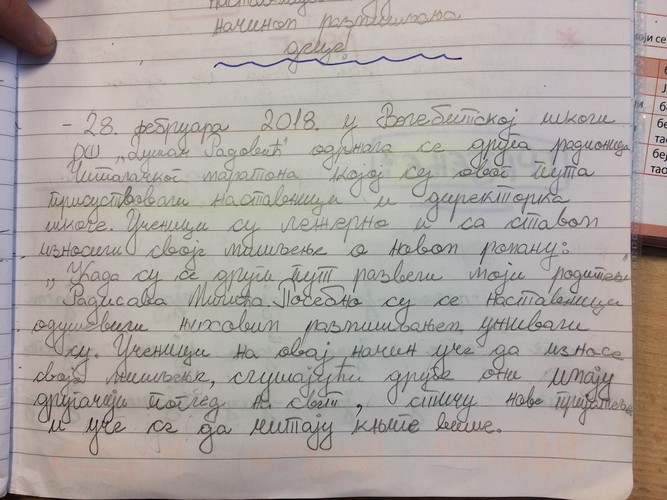 начином размишљања
деце!
- 28. фебруара 2018. у школи
ОШ „Душан Радовић" одржала се друга радионица
Читалачког маратона којој су овог пута
присуствовали наставници и директорка
школе. Ученици су лежерно и са ставом
износили своје мишљење о новом роману:
„Када су се други пут развели моји родитељи"
Радисава Милића. Посебно су се наставници
одушевили њиховим размишљањем уживали
су. Ученици на овај начин уче да износе
своје мишљење, слушајући друге они имају
другачији поглед на свет, стичу нове пријатеље
и уче се да читају књиге више.